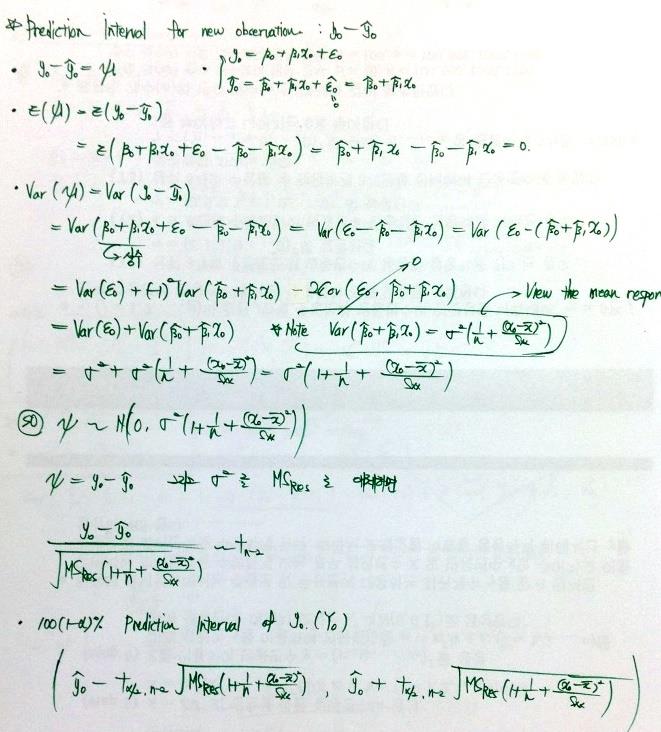 ※ Prediction Interval for new observation : y₀ - ŷ₀
· y₀ - ŷ₀ = ψ · { y₀ = β₀ + β₁x₀ + ε₀
ŷ₀ = β̂₀ + β̂₁x₀ + ε̂₀ = β̂₀ + β̂₁x₀
0
· E(ψ) = E(y₀ - ŷ₀)
= E(β₀ + β₁x₀ + ε₀ - β̂₀ - β̂₁x₀) = β̂₀ + β̂₁x₀ - β̂₀ - β̂₁x₀ = 0.
· Var(ψ) = Var(y₀ - ŷ₀)
= Var(β₀ + β₁x₀ + ε₀ - β̂₀ - β̂₁x₀) = Var(ε₀ - β̂₀ - β̂₁x₀) = Var(ε₀ - (β̂₀ + β̂₁x₀))
→ 상수
= Var(ε₀) + (-1)² Var(β̂₀ + β̂₁x₀) - 2Cov(ε₀, β̂₀ + β̂₁x₀) → 0 → View the mean respon
= Var(ε₀) + Var(β̂₀ + β̂₁x₀) ※ Note Var(β̂₀ + β̂₁x₀) = σ²(1/n + (x₀ - x̄)²/Sxx)
= σ² + σ²(1/n + (x₀ - x̄)²/Sxx) = σ²(1 + 1/n + (x₀ - x̄)²/Sxx)
SO ψ ~ N(0, σ²(1 + 1/n + (x₀ - x̄)²/Sxx))
ψ = y₀ - ŷ₀ σ² 를 MS_Res 로
(y₀ - ŷ₀) / √(MS_Res(1 + 1/n + (x₀ - x̄)²/Sxx)) ~ t_{n-2}
· 100(1-α)% Prediction Interval of y₀. (Y₀)
( ŷ₀ - t_{α/2, n-2} √(MS_Res(1 + 1/n + (x₀ - x̄)²/Sxx)) , ŷ₀ + t_{α/2, n-2} √(MS_Res(1 + 1/n + (x₀ - x̄)²/Sxx)) )